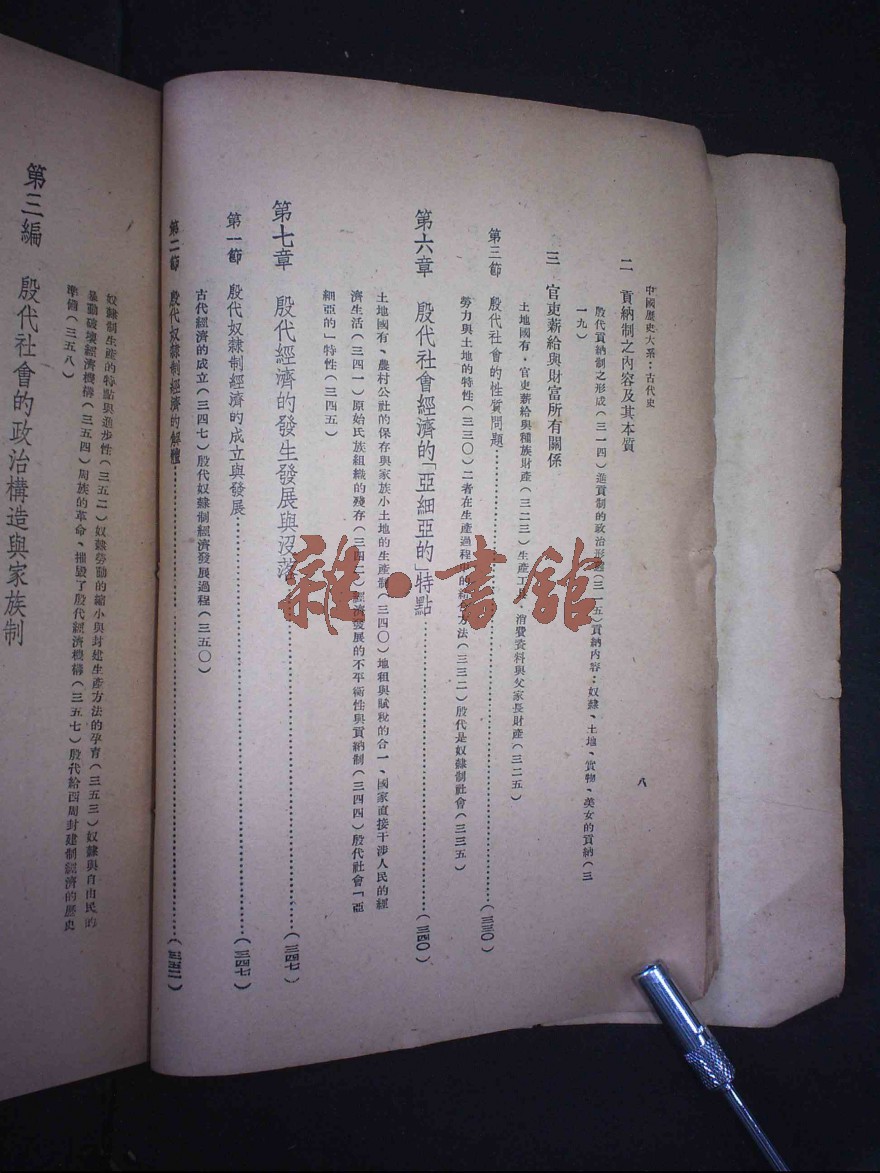 中國歷史大系：古代史
八
二 貢納制之內容及其本質
殷代貢納制之形成（三一四）進貢制的政治形態（三一五）貢納內容：奴隸、土地、實物、美女的貢納（三
一九）
三 官吏薪給與財富所有關係
土地國有・官吏薪給與種族財產（三二三）生產工具・消費資料與父家長財產（三二五）
第三節 殷代社會的性質問題（三三〇）
勞力與土地的特性（三三〇）二者在生產過程中的結合方法（三三二）殷代是奴隸制社會（三三五）
第六章 殷代社會經濟的「亞細亞的」特點（三四〇）
土地國有、農村公社的保存與家族小土地的生產制（三四〇）地租與賦稅的合一、國家直接干涉人民的經
濟生活（三四一）原始民族組織的殘存（三四二）經濟發展的不平衡性與貢納制（三四四）殷代社會「亞
細亞的」特性（三四五）
第七章 殷代經濟的發生發展與沒落（三四七）
第一節 殷代奴隸制經濟的成立與發展（三四七）
古代經濟的成立（三四七）殷代奴隸制經濟發展過程（三五〇）
第二節 殷代奴隸制經濟的解體（三五二）
奴隸制生產的特點與進步性（三五二）奴隸勞動的縮小與封建生產方法的孕育（三五三）奴隸與自由民的
暴動破壞經濟機構（三五四）周族的革命、摧毀了殷代經濟機構（三五七）殷代給西周封建制經濟的歷史
準備（三五八）
第三編 殷代社會的政治構造與家族制
雜・書館